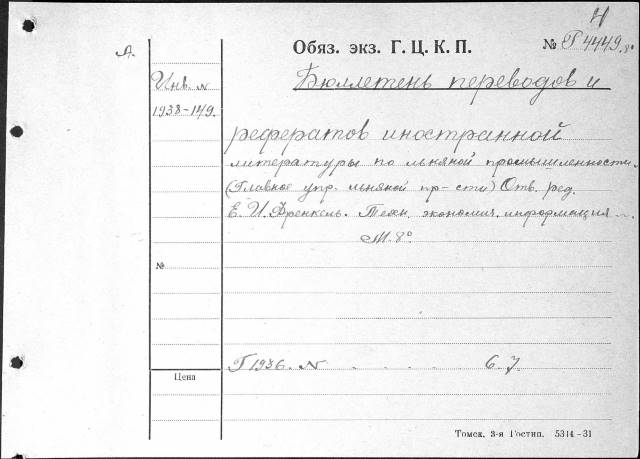 4
Д.
Обяз. экз. Г. Ц. К. П. № Г 4449. 8°
Инв. N
1938-149.
Бюллетень переводов и
рефератов иностранной
литературы по льняной промышленности.
(Главное упр. льняной пр-сти) Отв. ред.
Е. И. Френкель. Техн. экономич. информация
М. 8°
№
Г 1936. N . . . . 6. 7.
Цена
Томск, 3-я Гостип. 5314-31